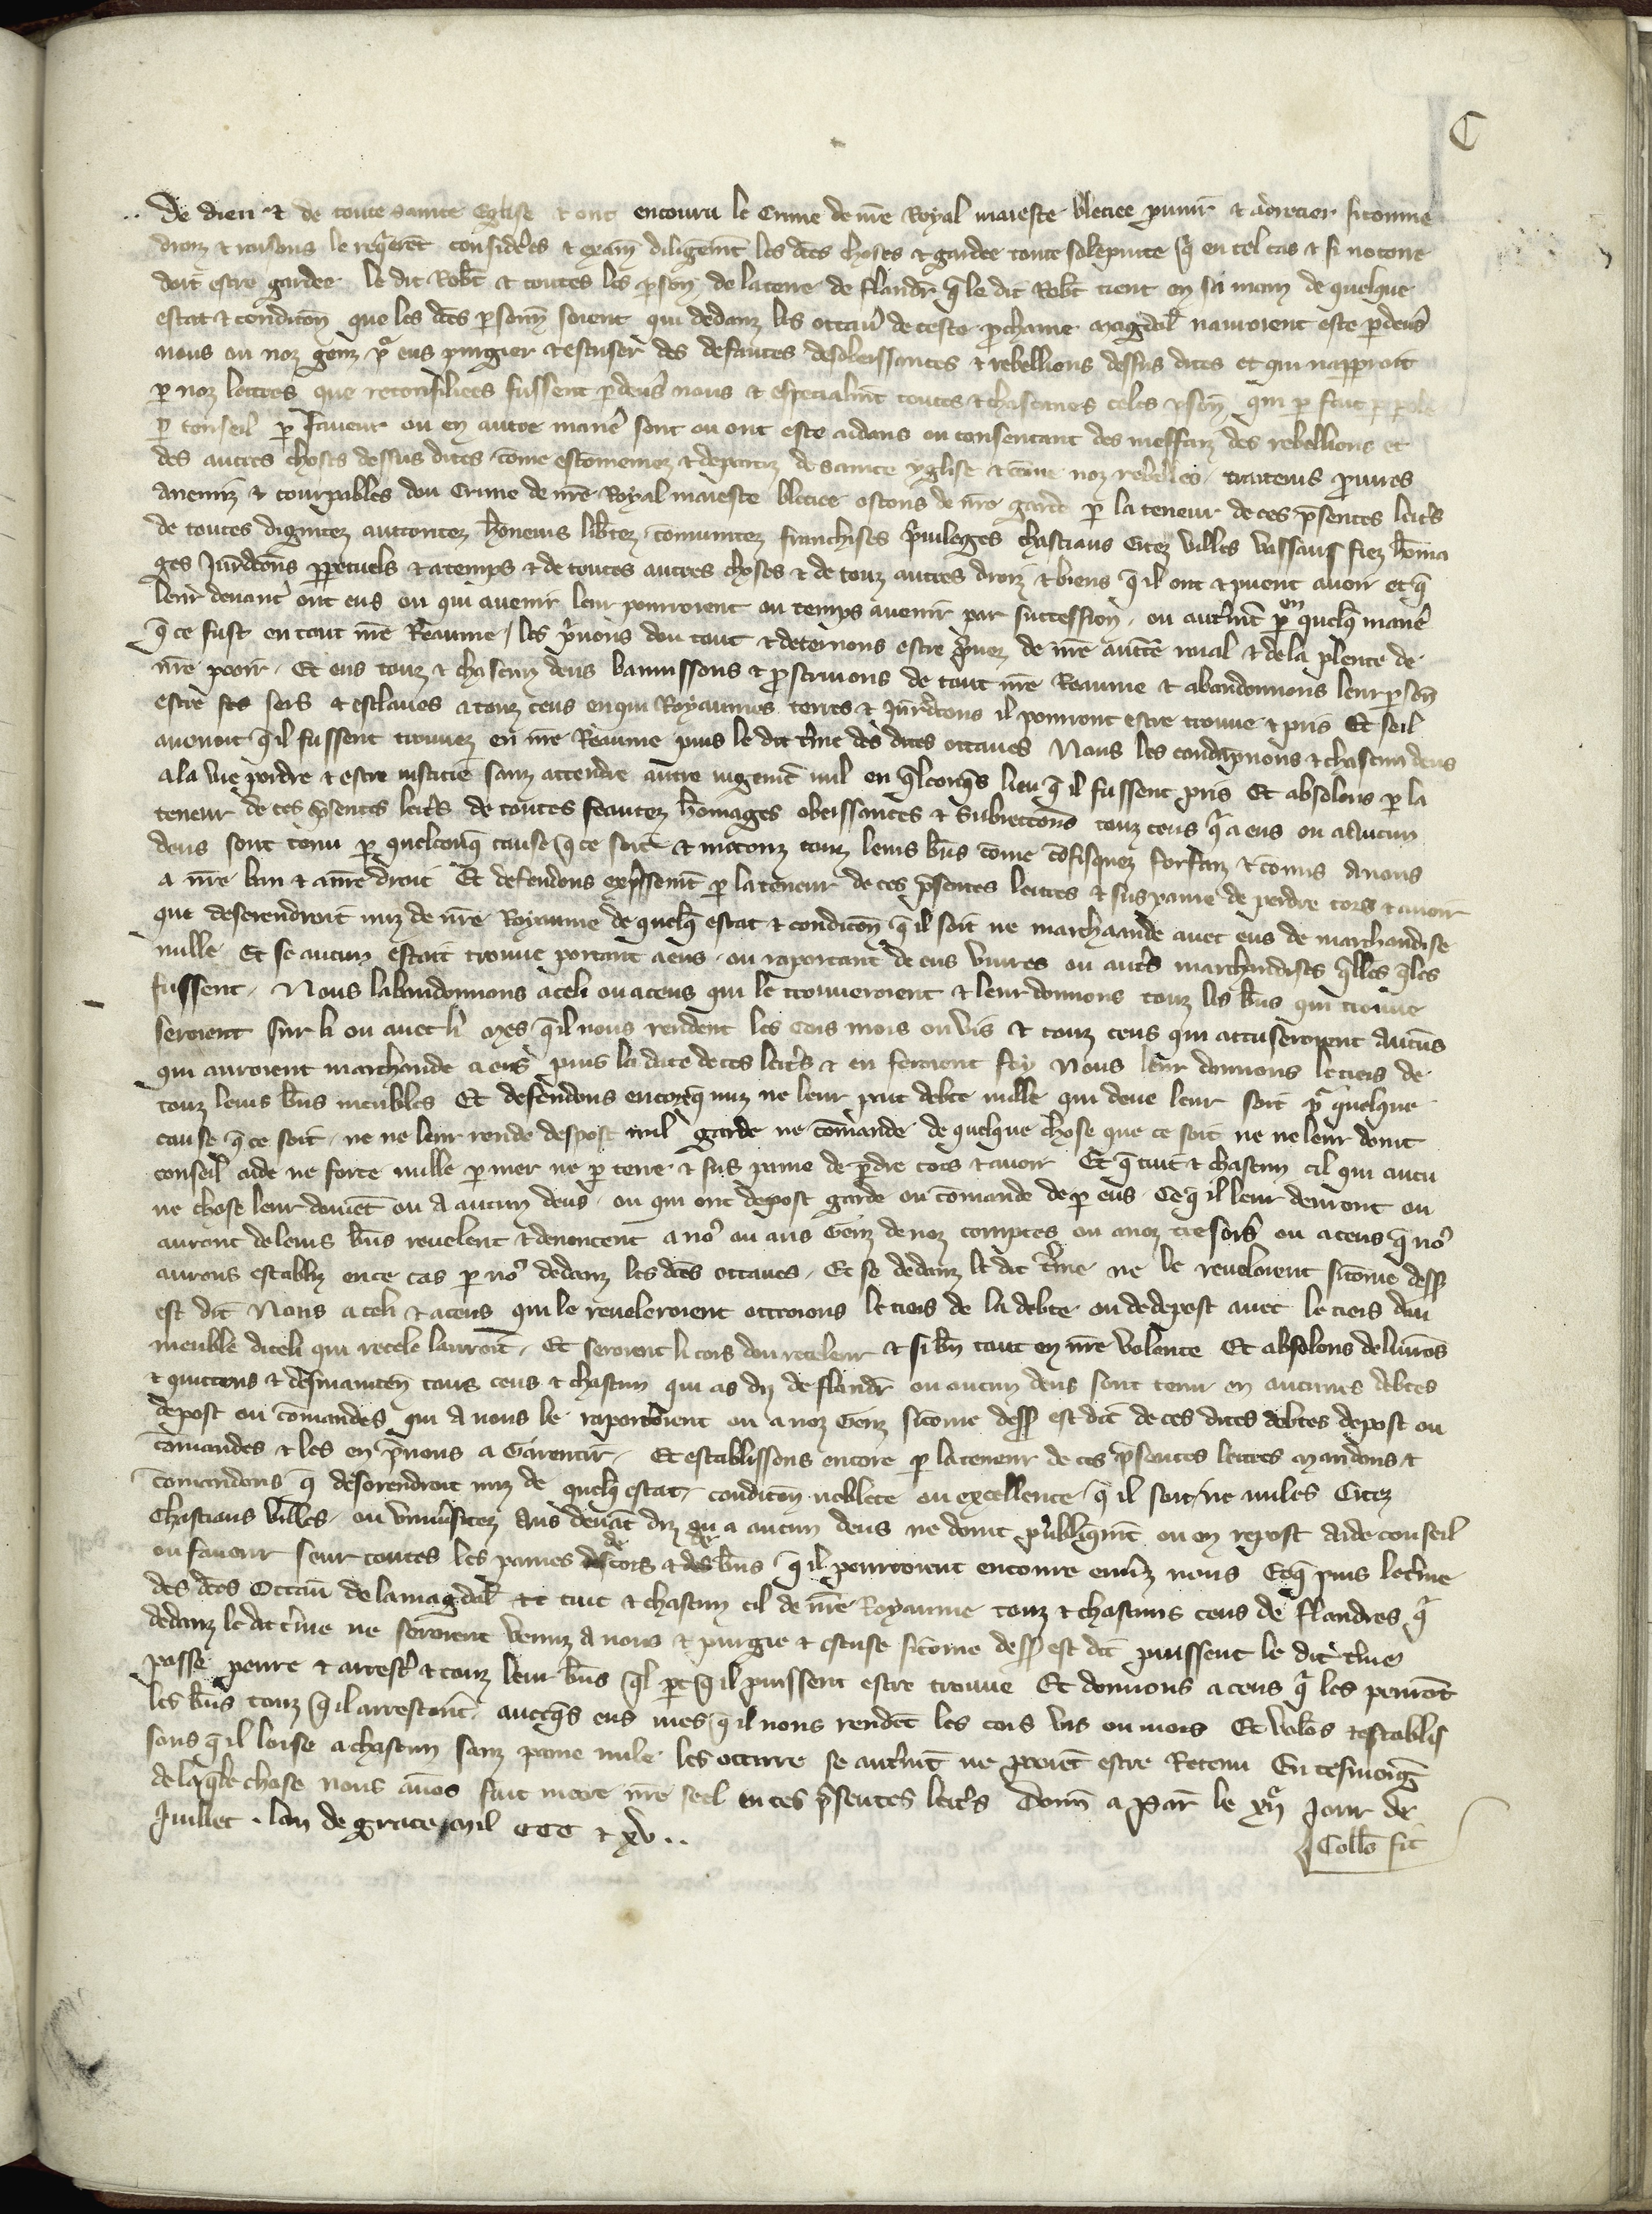 C
De dieu & de toute sainte Eglise & ont encouru le Crime de nr̃e Royal maieste bleciee punir & adrecier si comme
droiz & raisons le req̃rent considerees & exam̃ diligem̃t les d̃tes choses & gardee toute solẽpnite q̃ en tel cas & si notoire
doit estre gardee le dit Rob̃t & toutes les p̃son̄ de la terre de flandr̃ q̃ le dit Rob̃t tient en sa main de quelque
estat & condicon̄ que les d̃tes p̃son̄n soient qui dedanz les octau̓ de ceste p̃chaine Magdal̃ nauroient este p̃ deu̓s
nous ou noz genz p̃ eus purgier & escuser des defautes desobeissances & rebellions dessus dites et qui napparroit
p̃ noz lettres que reconsiliees fussent p̃ deu̓s nous & especialm̃t toutes & chascunes celes p̃son̄ qui p̃ fait p̃ p̃ole
p̃ conseil p̃ faueur ou en autre manie̓ sont ou ont este aidans ou consentant des meffaiz des rebellions et
des autres choses dessus dites come escomeniez & departiz de sainte yglise & come noz rebelles traiteurs p̃uures
anemiz & courpables dou Crime de nr̃e Royal maieste bleciee ostons de nr̃e garde p̃ la teneur de ces p̃sentes lett̓s
de toutes dignitez auctoritez honeurs lib̃tez comunitez franchises p̃uileges chastiaus Citez villes vassaus fiez hom̃a
ges Jur̃dicons ppetuels & a temps & de toutes autres choses & de touz autres droiz & biens q̃ il ont & puent auoir et q̃
leur deuanc̓ ont eus ou qui auenir leur pourroient ou temps auenir par succession ou aut̓m̃t p̃ en quelq̃ manie̓
q̃ ce fust en tout nr̃e Reaume les p̃uons dou tout & decernons estre p̃uez de nr̃e auct̃e roial & de la plente de
nr̃e pooir Et eus touz & chascun deus bannissons & p̃scriuons de tout nr̃e Reaume & abandonnons leur p̃son̄
estre sers & esclaues a touz ceus en qui Royaumes terres & Jur̃dicons il pourront estre trouue & pris Et seil
auenoit q̃ il fussent trouuez en nr̃e Reaume puis le dit t̓me des dites octaues Nous les condãpnons & chascun deus
a la vie perdre & estre iusticie sanz attendre autre iugem̃t nul en q̃lconq̃s lieu q̃ il fussent pris Et absolons p̃ la
teneur de ces p̃sentes lett̓s de toutes feautez homages obeissances & Subieccons touz ceus q̃ a eus ou a aucun
deus sont tenu p̃ quelconq̃ cause q̃ ce soit & metons touz leurs b̃ns come cõfisquez forfaiz & comis a nous
a nr̃e ban & a nr̃e droit Et defendons exp̃ssem̃t p̃ la teneur de ces p̃sentes lettres & sus paine de perdre cors & auoir
que deserendroit nuz de nr̃e Royaume de quelq̃ estat & condicon̄ q̃ il soit ne marchaande auec eus de marchandise
nulle Et se aucun estoit trouue portant a eus ou raportant de eus viures ou aut̓s marchandises q̃lles q̃les
fussent Nous labandonnons a celi ou a ceus qui le trouueroient & leur donnons touz les b̃ns qui trouue
seroient sur li ou auec li mes q̃ il nous rendent les cors mors ou vis & touz ceus qui accuseroient aucuns
qui auroient marchande a eus puis la date de ces lett̓s & en feroient foy Nous leur donnons le tiers de
touz leurs b̃ns meubles Et defendons encore q̃ nuz ne leur pait debte nulle qui deue leur soit p̃ quelque
cause q̃ ce soit ne ne leur rende despost nul garde ne comande de quelque chose que ce soit ne ne leur doint
conseil aide ne force nulle p̃ mer ne p̃ terre & sus paine de p̃dre cors & auoir Et q̃ tuit & chascun cil qui aucu
ne chose leur doiuẽt ou a aucun deus ou qui ont depost garde ou comande de p̃ eus Ce q̃ il leur deuront ou
auront de leurs b̃ns reuelent & denoncent a no̓ ou aus Genz de noz comptes ou a noz tresors̓ ou a ceus q̃ no̓
aurons establiz en ce cas p̃ no̓ dedanz les d̃tes octaues Et se dedanz le dit t̓me ne le reueloient sicome dess̃
est dit Nous a celi & a ceus qui le reueleroient ottroions le tiers de la debte ou de depost auec le tiers dou
meuble diceli qui recele lauroit Et seroient li cors dou receleur & si b̃n tout en nr̃e volente Et absolons deliurõs
& quittons & desmainten̄ tous ceus & chascun qui as diz de flandr̃ ou aucun deus sont tenu en aucunes debtes
depost ou comandes qui a nous le raport̓oient ou a noz Genz sicome dess̃ est dit de ces dites debtes depost ou
comandes & les en p̃nons a Garentir Et establissons encore p̃ la teneur de ces p̃sentes lettres mandons &
comandons q̃ desorendroit nuz de quelq̃ estat condicon̄ noblece ou excellence q̃ il soit ne nules Citez
Chastiaus villes ou vniu̓sitez aus deuãt diz ou a aucun deus ne doint publiqm̃t ou en repost aide conseil
ou faueur seur toutes les paines de cors & de b̃ns q̃ il pourroient encourre enu̓s nous Et q̃ puis le t̓me
des d̃tes Octau̓ de la magdal̃ tuit & chascun cil de nr̃e Royaume touz & chascuns ceus de flandres q̃
dedanz le dit t̓me ne seroient venuz a nous & purgie & escuse sicome dess̃ est dit puissent le dit t̓me
passe penre & arrest̓ & touz leur b̃ns q̃l p̃t q̃ il puissent estre trouue Et donnons a ceus q̃ les penrõt
les b̃ns touz q̃ il arresterõt auecq̃s eus mes q̃ il nous rendẽt les cors vis ou mors Et volõs & establis
sons q̃ il loise a chascun sanz paine nule les occirre se aut̓m̃t ne pooiẽt estre Retenu En tesmoig̃
de laq̃le chose nous auõs fait metre nr̃e seel en ces p̃sentes lett̓s Don̄n a Par̃ le Jour de
Juillet lan de grace mil CCC & xv
Coll̃o fit